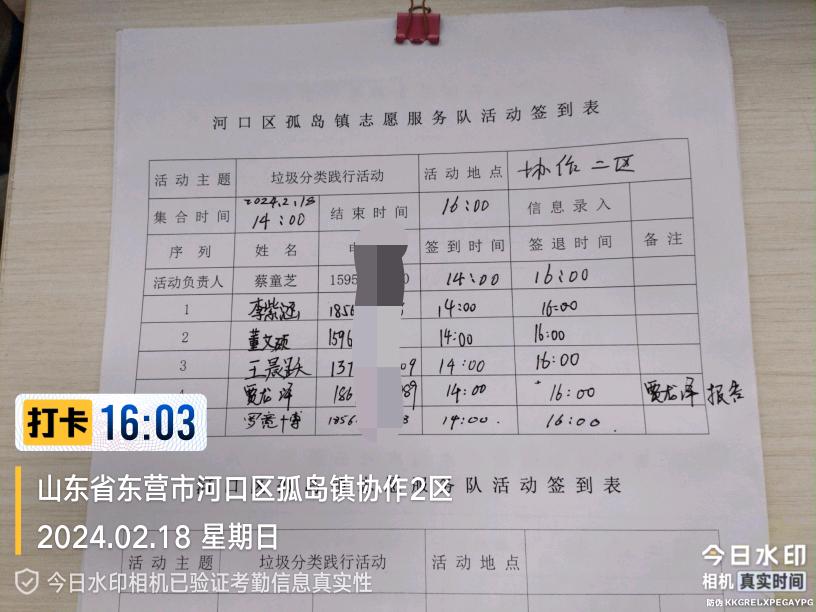 河口区孤岛镇志愿服务队活动签到表
活动主题 垃圾分类践行活动 活动地点 协作二区
集合时间 2024.2.18 14:00 结束时间 16:00 信息录入
序列 姓名 签到时间 签退时间 备注
活动负责人 蔡童芝 1595 0 14:00 16:00
1 李紫涵 1856 14:00 16:00
2 董文硕 1596 14:00 16:00
3 王晨跃 137 09 14:00 16:00
贾龙泽 186 89 14:00 16:00 贾龙泽 报告
罗 博 1856 3 14:00. 16:00.
打卡 16:03
河口区孤岛镇 服务队活动签到表
山东省东营市河口区孤岛镇协作2区
2024.02.18 星期日
活动主题 垃圾分类践行活动 活动地点
今日水印相机已验证考勤信息真实性
今日水印
相机 真实时间
防伪 KKGRELXPEGAYPG